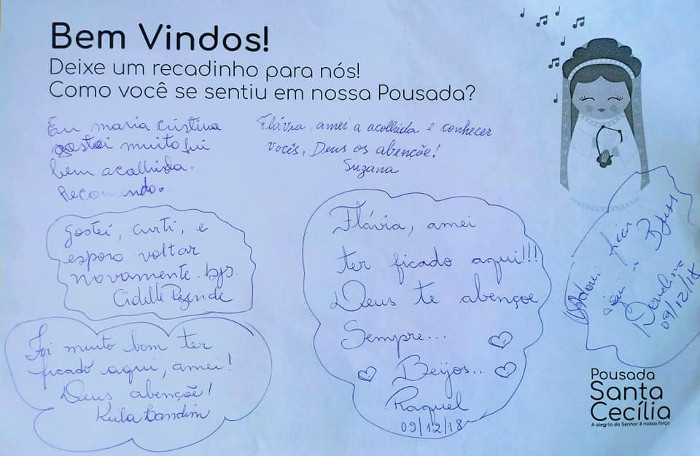 Bem Vindos!
Deixe um recadinho para nós!
Como você se sentiu em nossa Pousada?
Eu maria cristina
gostei muito fui
bem acolhida.
Recomendo.
Flávia, amei a acolhida e conhecer
vocês, Deus os abençõe!
Suzana
Gostei, curti, e
espero voltar
novamente. bjs.
Flávia, amei
ter ficado aqui!!!
Deus te abençoe
Sempre...
Beijos..
Raquel
09/12/18
Foi muito bom ter
ficado aqui, amei!
Deus abençõe!
ficar
aqui
09/12/18
Pousada
Santa
Cecília
A alegria do Senhor é nossa força